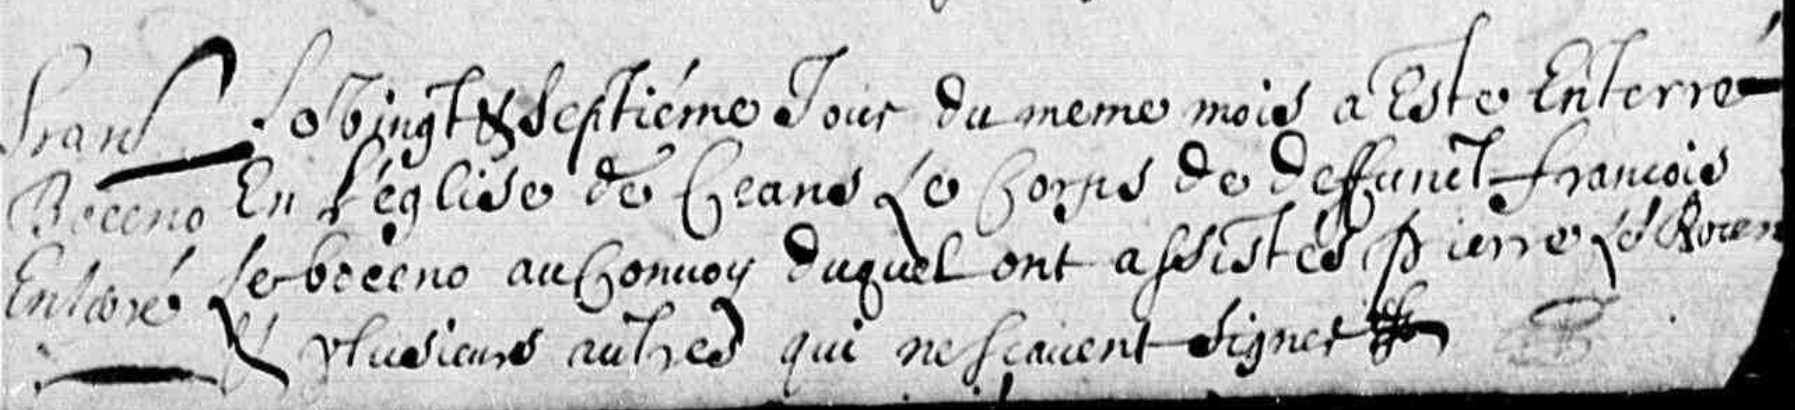 Frans
Boceno
Enterré
Le Vingt & Septiéme Jour du meme mois a Este Enterré
En l'église de Ceans Le Corps de deffunct francois
Le boceno au Convoy duquel ont assistés Pierre Le
& plusieurs autres qui ne scauent signer